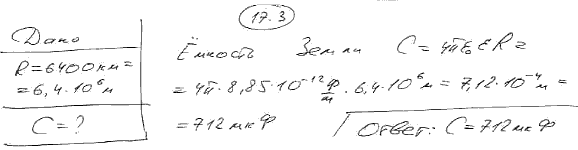 17.3
Дано
R=6400км=
=6,4·10⁶м
C=?
Ёмкость Земли C=4πε₀εR=
=4π·8,85·10⁻¹² Ф/м·6,4·10⁶м=7,12·10⁻⁴м=
=712мкФ
Ответ: C=712мкФ